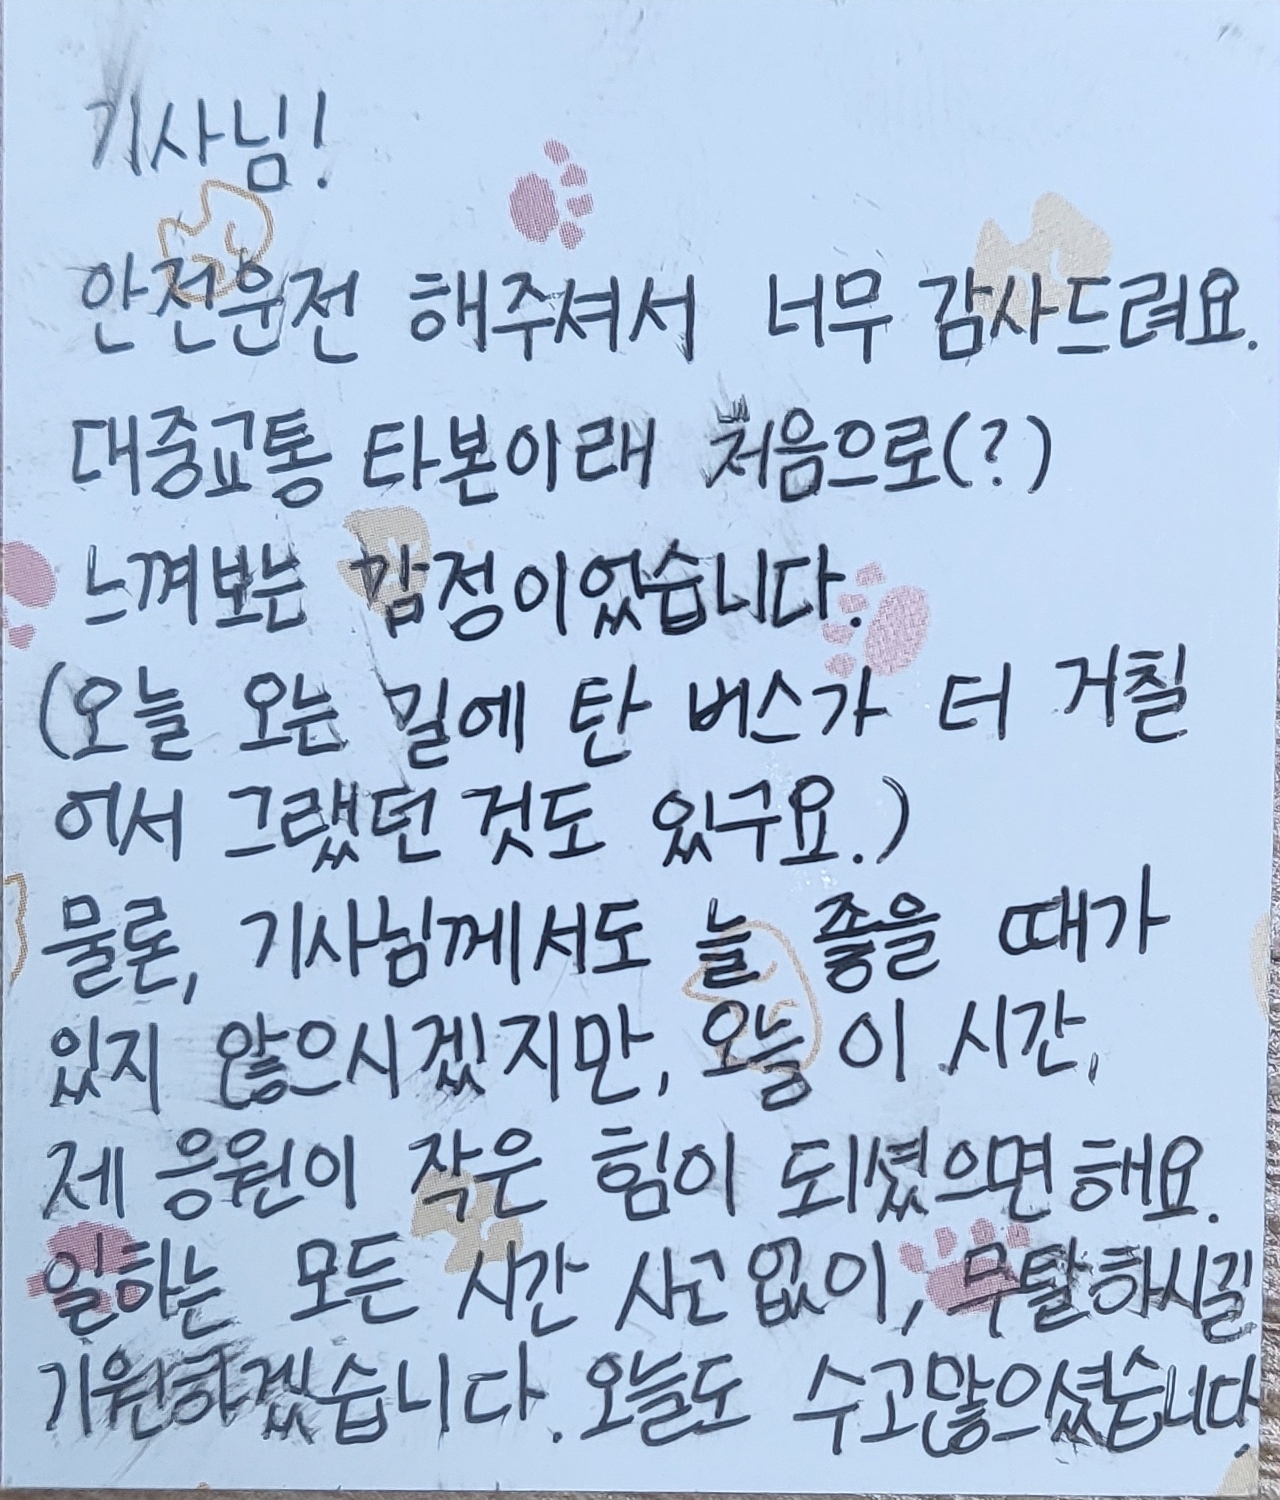 기사님!
안전운전 해주셔서 너무 감사드려요.
대중교통 타본이래 처음으로(?)
느껴보는 감정이었습니다.
(오늘 오는 길에 탄 버스가 더 거칠
어서 그랬던 것도 있구요.)
물론, 기사님께서도 늘 좋을 때가
있지 않으시겠지만, 오늘 이 시간,
제 응원이 작은 힘이 되셨으면 해요.
일하는 모든 시간 사고 없이, 무탈하시길
기원하겠습니다. 오늘도 수고많으셨습니다.